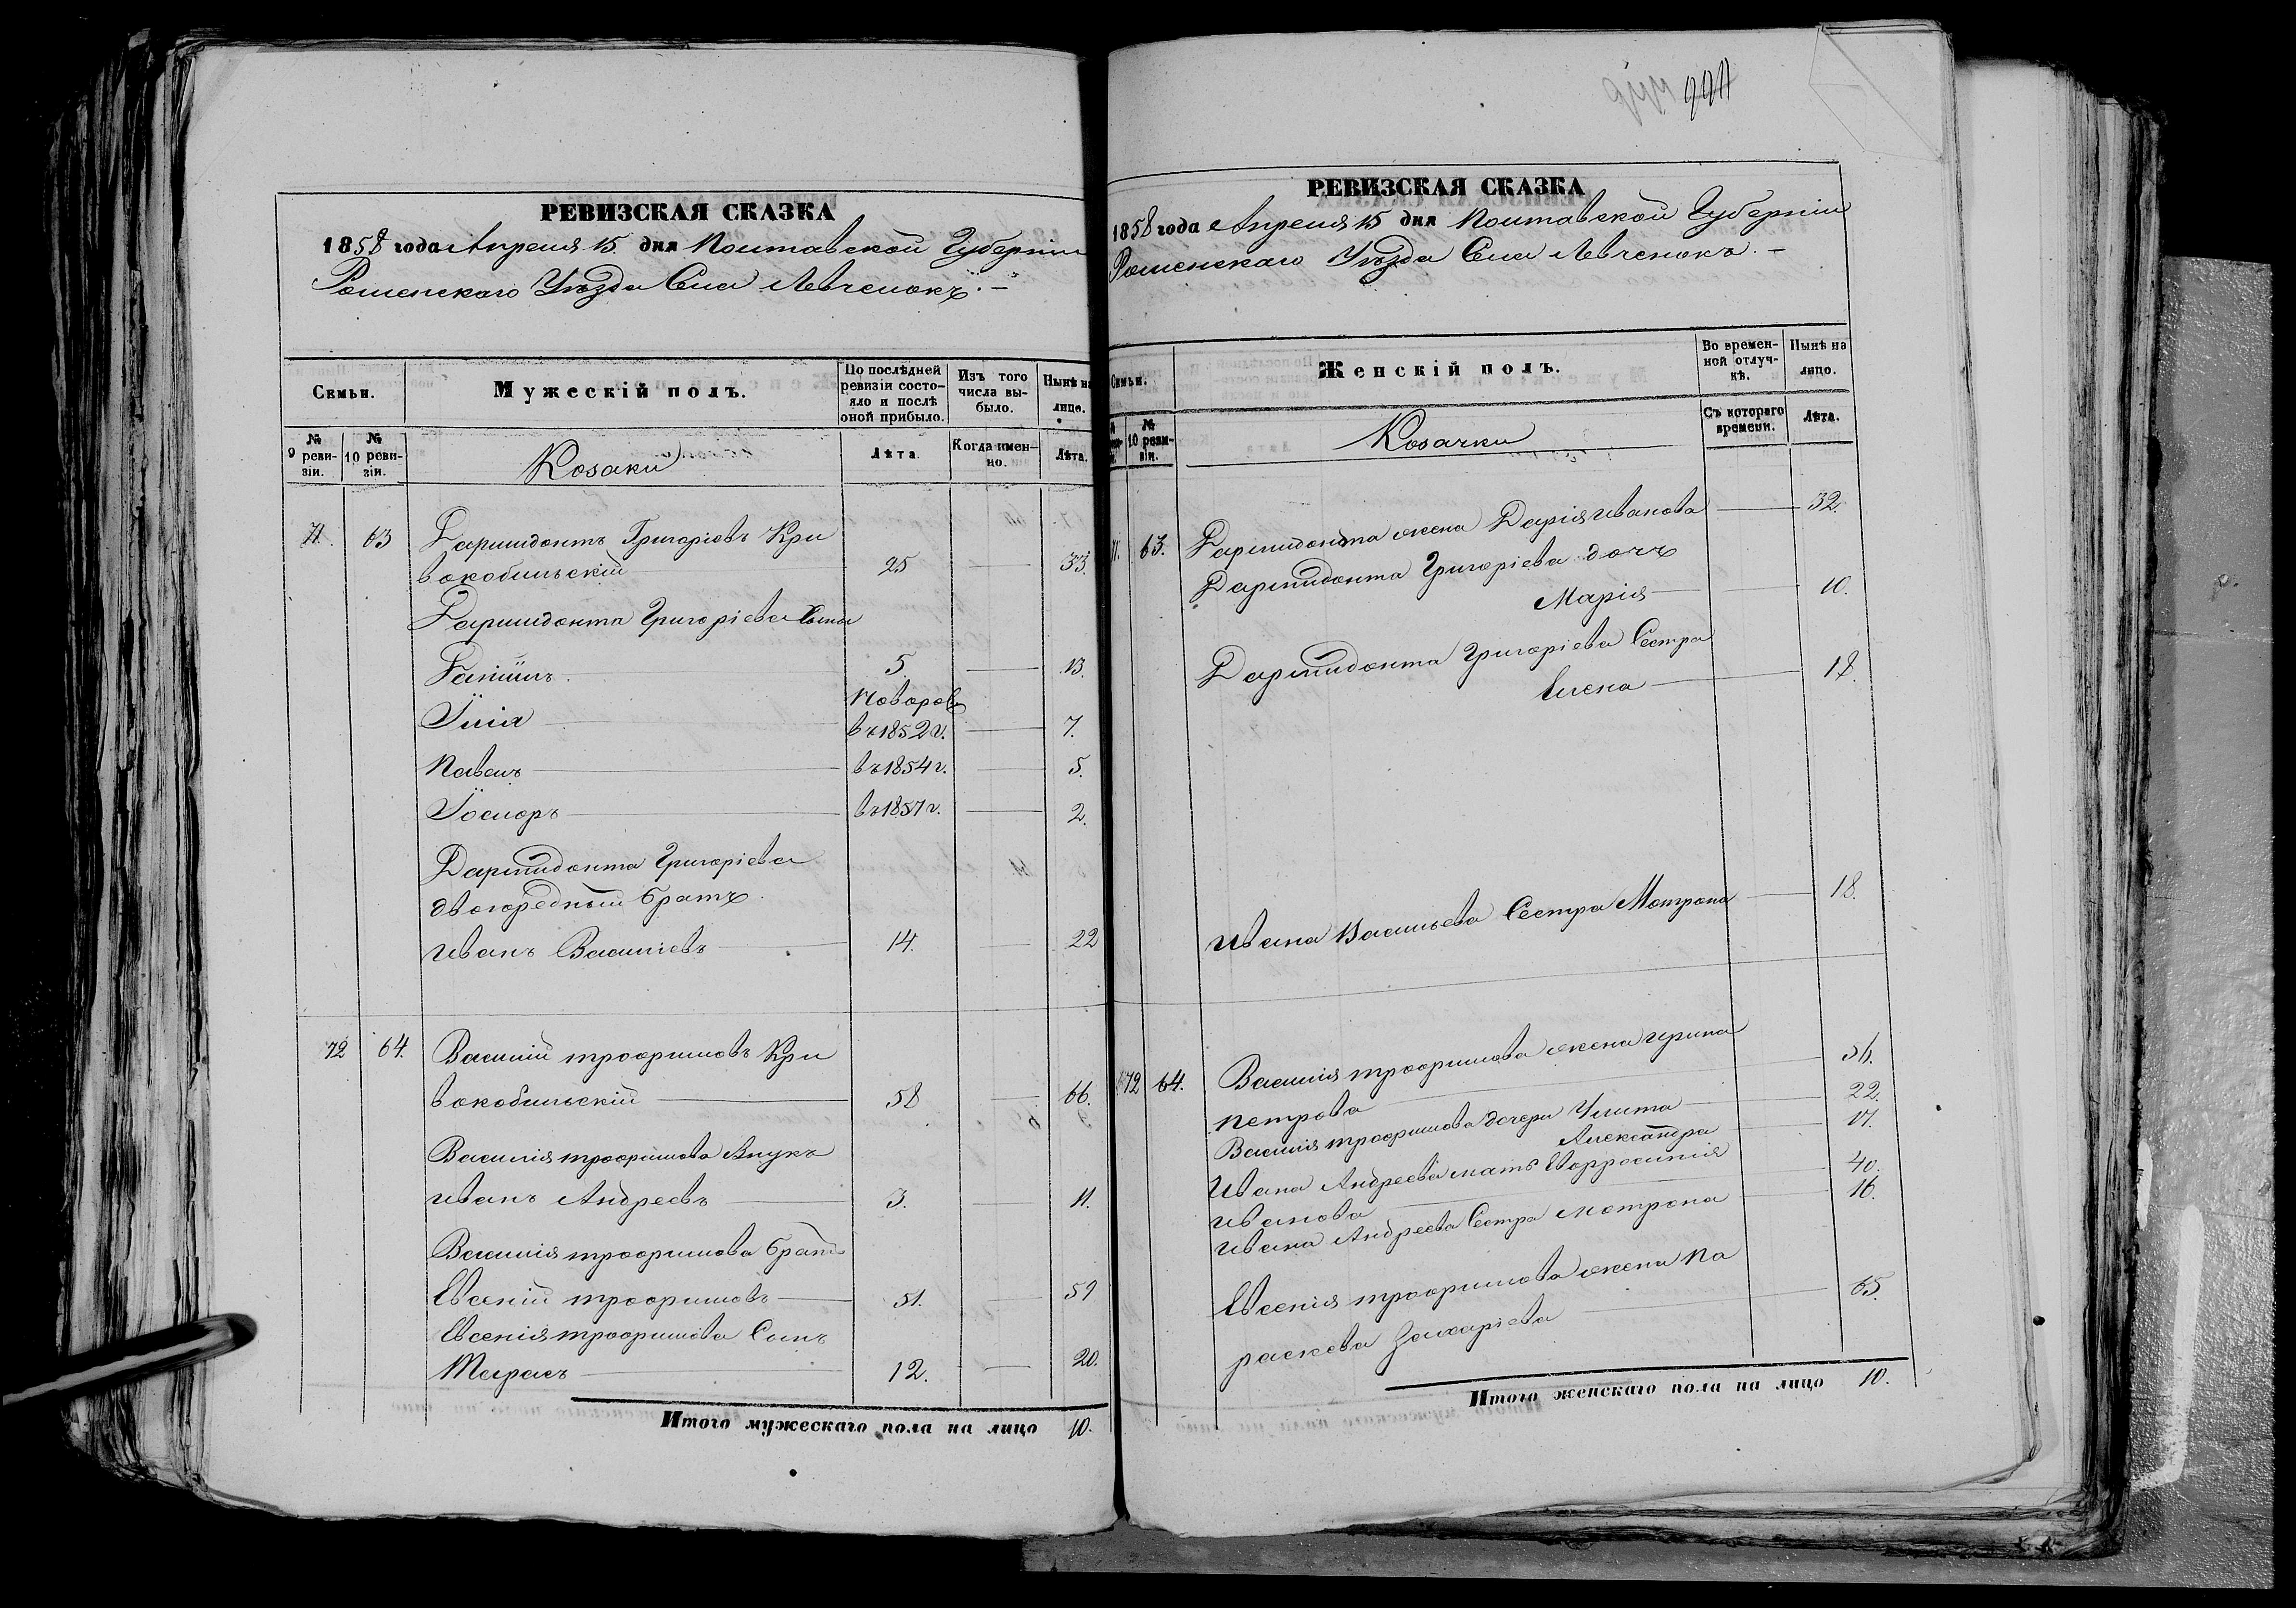 РЕВИЗСКАЯ СКАЗКА
1858 года Апреля 15 дня Полтавской Губерніи
Роменскаго Уѣзда Села Левченокъ. –
Семьи.
Мужескій полъ.
По послѣдней ревизіи состояло и послѣ оной прибыло.
Изъ того числа выбыло.
Нынѣ на лицо.
№ 9 ревизіи.
№ 10 ревизіи.
Козаки
Лѣта.
Когда именно.
Лѣта.
71. 63 Дармидонтъ Григоріевъ Кри
вокобильскій 25 33.
Дармидонта Григоріева Сына
Даніилъ 5. 13.
Новорож
Илія въ 1852 г. 7.
Павелъ въ 1854 г. 5.
въ 1857 г. 2.
Дармидонта Григоріева
двоюредный братъ
Иванъ Василіевъ 14. 22
72 64. Василій Трофимовъ Кри
вокобильскій 58 66.
Василія Трофимова Внукъ
Иванъ Андреевъ 3. 11.
Василія Трофимова братъ
Евсеній Трофимовъ 51. 59
Евсенія Трофимова Сынъ
Тарасъ 12. 20.
Итого мужескаго пола на лицо 10.
РЕВИЗСКАЯ СКАЗКА
1858 года Апреля 15 дня Полтавской Губерніи
Роменскаго Уѣзда Села Левченокъ. –
Семьи.
Женскій полъ.
Во временной отлучкѣ.
Нынѣ на лицо.
№ 10 ревизіи.
Козачки
Съ котораго времени.
Лѣта.
71. 63. Дармидонта жена Дарія Иванова 32.
Дармидонта Григоріева дочь
Марія 10.
Дармидонта Григоріева Сестра
Елена 18.
Ивана Васильева Сестра Мотрона 18.
72 64. Василія Трофимова жена Ирина
Петрова 56.
Василія Трофимова дочери Улита 22.
Александра 17.
Ивана Андреева мать Евфросинія
Иванова 40.
Ивана Андреева Сестра Мотрона 16.
Евсенія Трофимова жена Па
раскева Захаріева 65.
Итого женскаго пола на лицо 10.